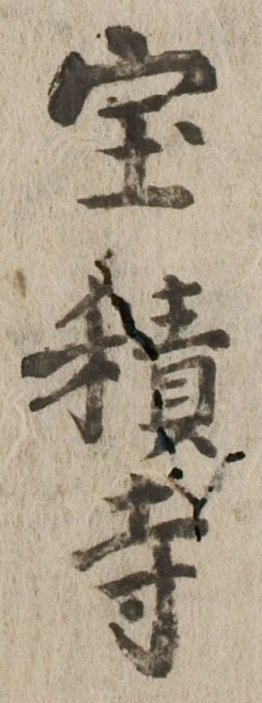 宝積寺